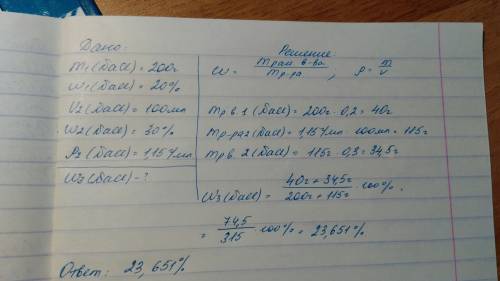 Дано:
m₁(NaCl) = 200г
w₁(NaCl) = 20%
V₂(NaCl) = 100мл
w₂(NaCl) = 30%
ρ₂(NaCl) = 1,15 г/мл
w₃(NaCl) - ?
Решение
w = mраст. в-ва / mр-ра , ρ = m/v
mр.в. 1 (NaCl) = 200г · 0,2 = 40г
mр-ра2 (NaCl) = 1,15 г/мл · 100мл = 115г
mр.в. 2 (NaCl) = 115г · 0,3 = 34,5г
w₃(NaCl) = 40г + 34,5г / 200г + 115г · 100% =
= 74,5 / 315 · 100% = 23,651%
Ответ: 23,651%